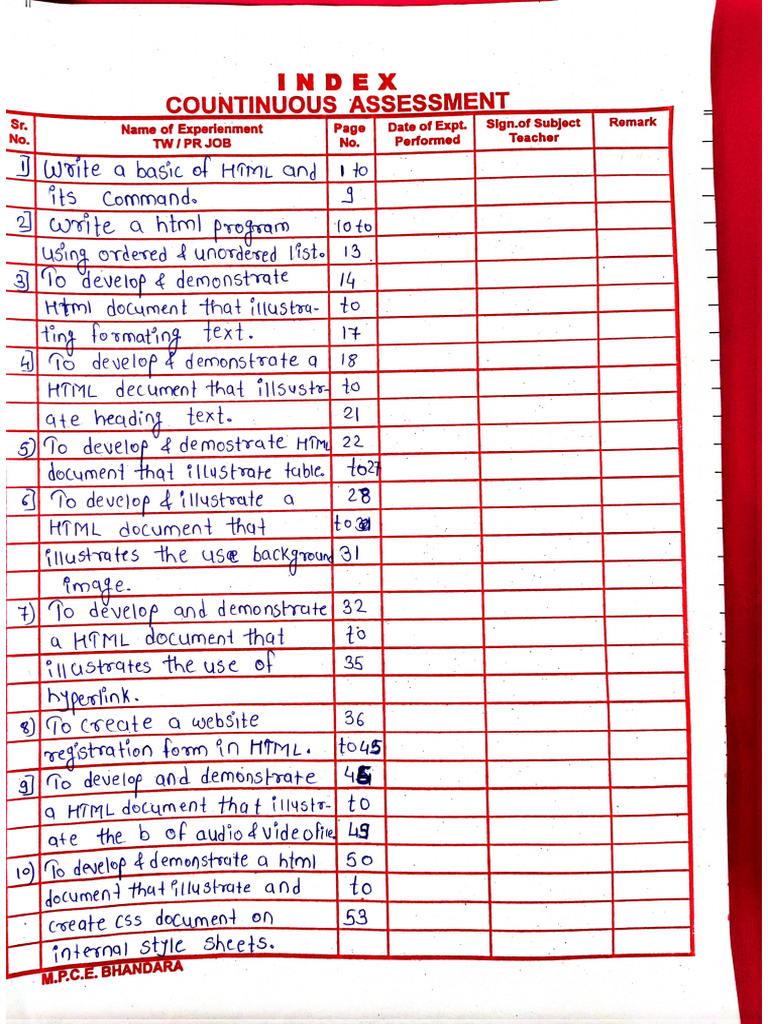 INDEX
COUNTINUOUS ASSESSMENT
Sr. No. Name of Experienment TW / PR JOB Page No. Date of Expt. Performed Sign.of Subject Teacher Remark
1] Write a basic of HTML and 1 to
its Command. 9
2] Write a html program 10 to
using ordered & unordered list. 13
3] To develop & demonstrate 14
Html document that illustra- to
ting formating text. 17
4] To develop & demonstrate a 18
HTML decument that illsustr- to
ate heading text. 21
5) To develop & demostrate HTML 22
document that illustrate table. to 27
6] To develop & illustrate a 28
HTML document that to
illustrates the use background 31
image.
7) To develop and demonstrate 32
a HTML document that to
illustrates the use of 35
hyperlink.
8) To create a website 36
registration form in HTML. to 45
9] To develop and demonstrate 46
a HTML document that illustr- to
ate the b of audio & video file. 49
10) To develop & demonstrate a html 50
document that illustrate and to
create css document on 53
internal style sheets.
M.P.C.E. BHANDARA